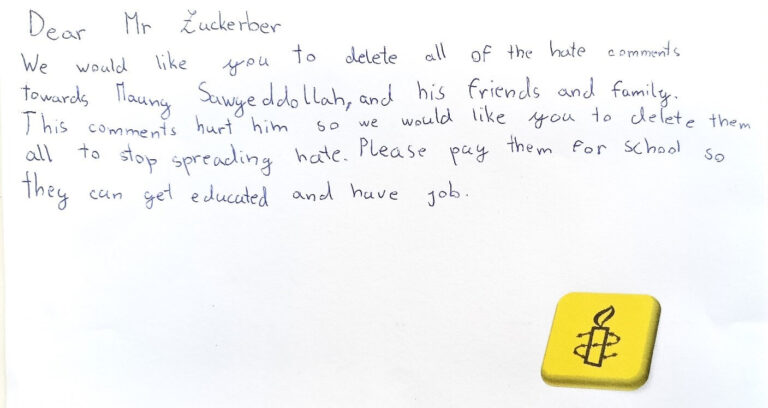 Dear Mr Zuckerber
We would like you to delete all of the hate comments
towards Maung Sawyeddollah, and his friends and family.
This comments hurt him so we would like you to delete them
all to stop spreading hate. Please pay them for school so
they can get educated and have job.